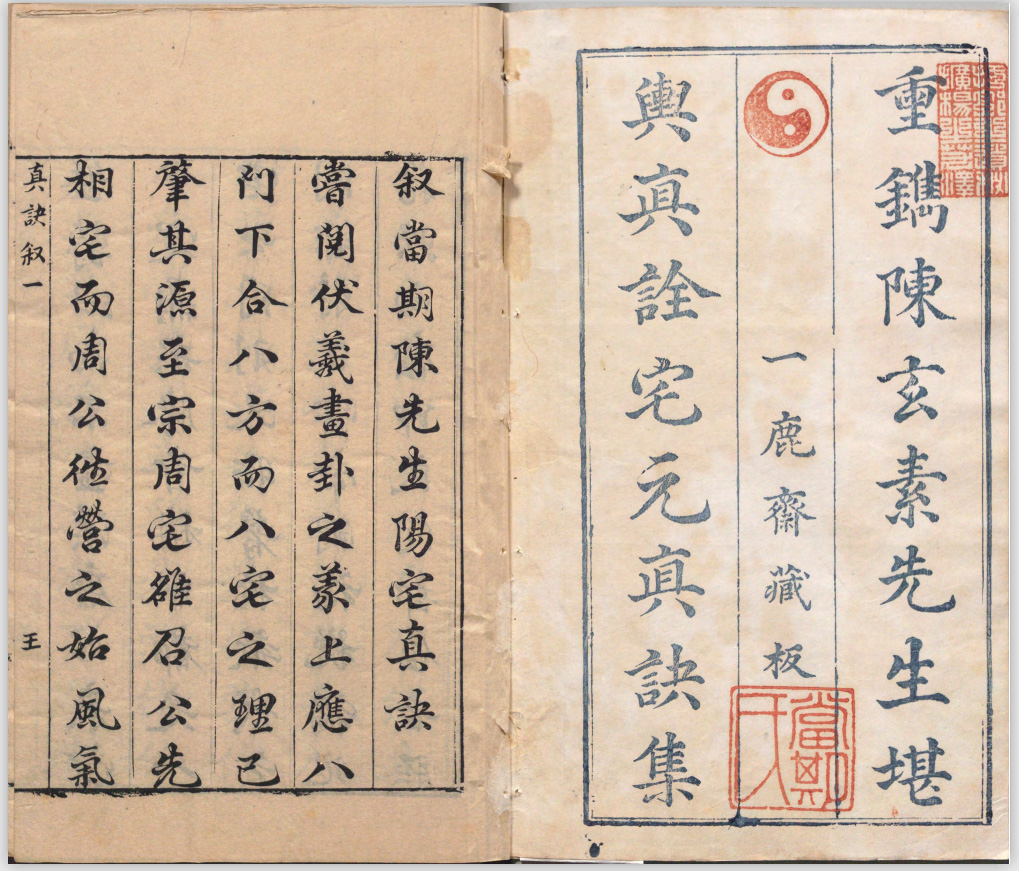 重鐫陳玄素先生堪
一鹿齋藏板
輿真詮宅元真訣集
叙當期陳先生陽宅真訣
嘗閱伏羲畫卦之象上應八
門下合八方而八宅之理已
肇其源至宗周宅雒召公先
相宅而周公徃營之始風氣
真訣叙一
王